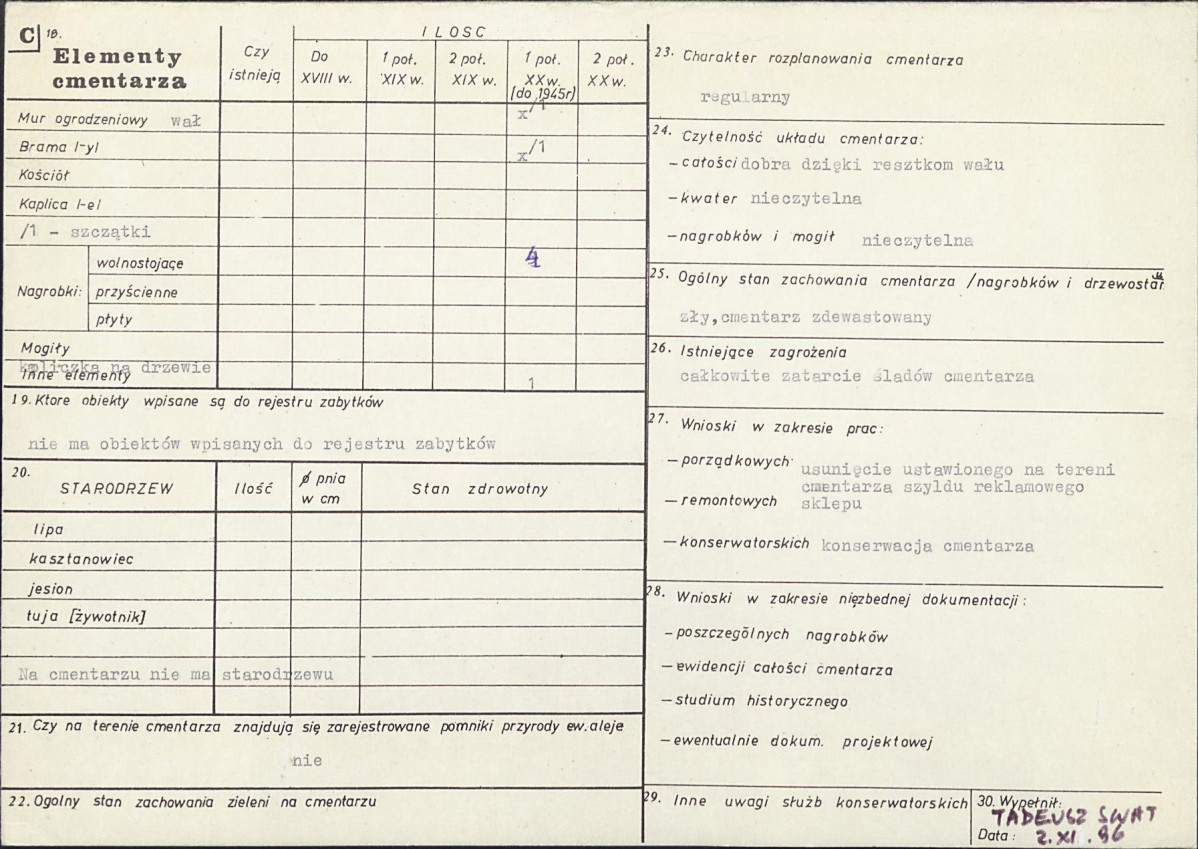 C 18.
Elementy
cmentarza
Czy
istnieją
ILOSC
Do
XVIII w.
1 poł.
XIX w.
2 poł.
XIX w.
1 poł.
XX w.
(do 1945r)
2 poł.
XX w.
Mur ogrodzeniowy wał x/1
Brama /-y/ x/1
Kościół
Kaplica /-e/
/1 - szczątki
Nagrobki:
wolnostojące 4
przyścienne
płyty
Mogiły
kapliczka na drzewie
Inne elementy 1
19. Ktore obiekty wpisane są do rejestru zabytków
nie ma obiektów wpisanych do rejestru zabytków
20.
STARODRZEW
Ilość
ø pnia
w cm
Stan zdrowotny
lipa
kasztanowiec
jesion
tuja [żywotnik]
Na cmentarzu nie ma starodrzewu
21. Czy na terenie cmentarza znajdują się zarejestrowane pomniki przyrody ew. aleje
nie
22. Ogolny stan zachowania zieleni na cmentarzu
23. Charakter rozplanowania cmentarza
regularny
24. Czytelność układu cmentarza:
- całości dobra dzięki resztkom wału
- kwater nieczytelna
- nagrobków i mogił nieczytelna
25. Ogólny stan zachowania cmentarza /nagrobków i drzewostanu
zły, cmentarz zdewastowany
26. Istniejące zagrożenia
całkowite zatarcie śladów cmentarza
27. Wnioski w zakresie prac:
- porządkowych usunięcie ustawionego na tereni
cmentarza szyldu reklamowego
- remontowych sklepu
- konserwatorskich konserwacja cmentarza
28. Wnioski w zakresie nięzbednej dokumentacji:
- poszczególnych nagrobków
- ewidencji całości cmentarza
- studium historycznego
- ewentualnie dokum. projektowej
29. Inne uwagi służb konserwatorskich
30. Wypełnił:
TADEUSZ SWAT
Data: 2.XI.86